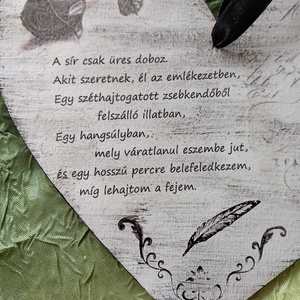 A sír csak üres doboz.
Akit szeretnek, él az emlékezetben,
Egy széthajtogatott zsebkendőből
felszálló illatban,
Egy hangsúlyban,
mely váratlanul eszembe jut,
és egy hosszú percre belefeledkezem,
míg lehajtom a fejem.